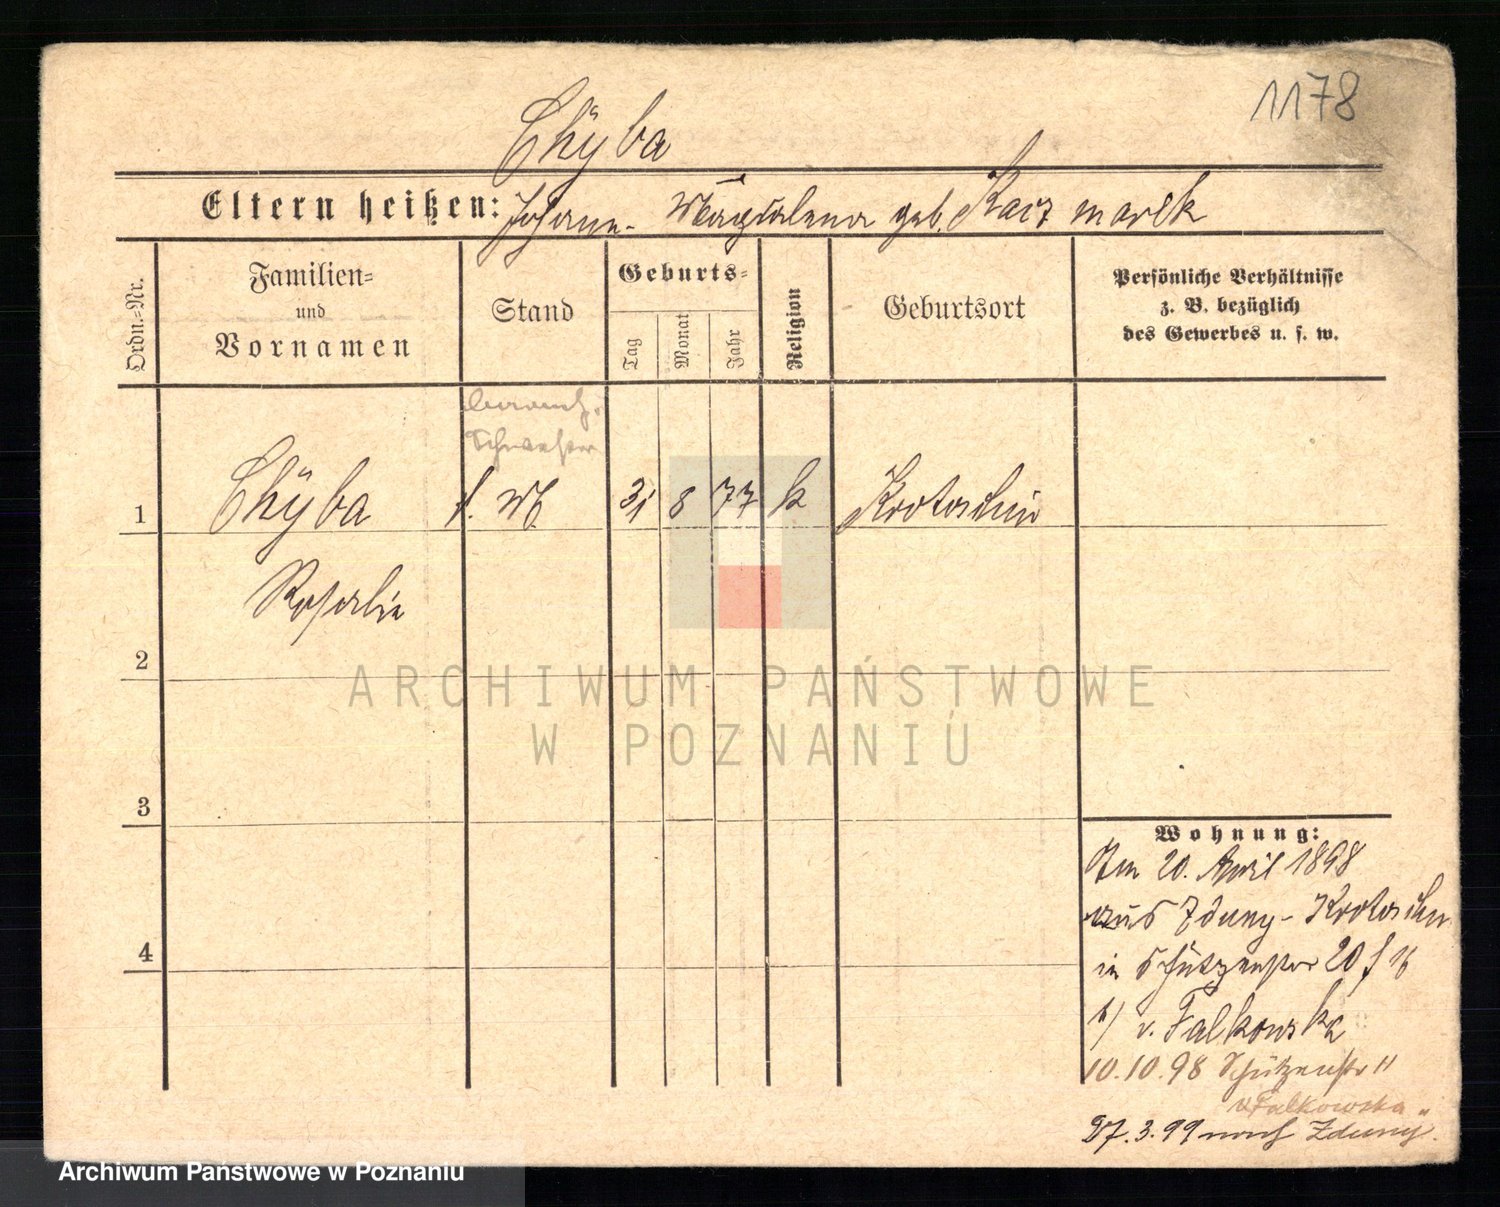 1178
Chÿba
Eltern heißen: Johann - Magdalena geb. Kaczmarek
Ordn.-Nr.
Familien-
und
Vornamen
Stand
Geburts-
Tag
Monat
Jahr
Religion
Geburtsort
Persönliche Verhältnisse
z. B. bezüglich
des Gewerbes u. s. w.
Schwester
1 Chÿba 31 8 77 k Krotoschin
Rosalie
2
ARCHIWUM PAŃSTWOWE
W POZNANIU
3
4
Wohnung:
Am 20. April 1898
aus Zduny - Krotoschin
in Schützenstr 20
v. Falkowska
10.10.98 Schützenstr 11
v. Falkowska
27.3.99 nach Zduny.
Archiwum Państwowe w Poznaniu